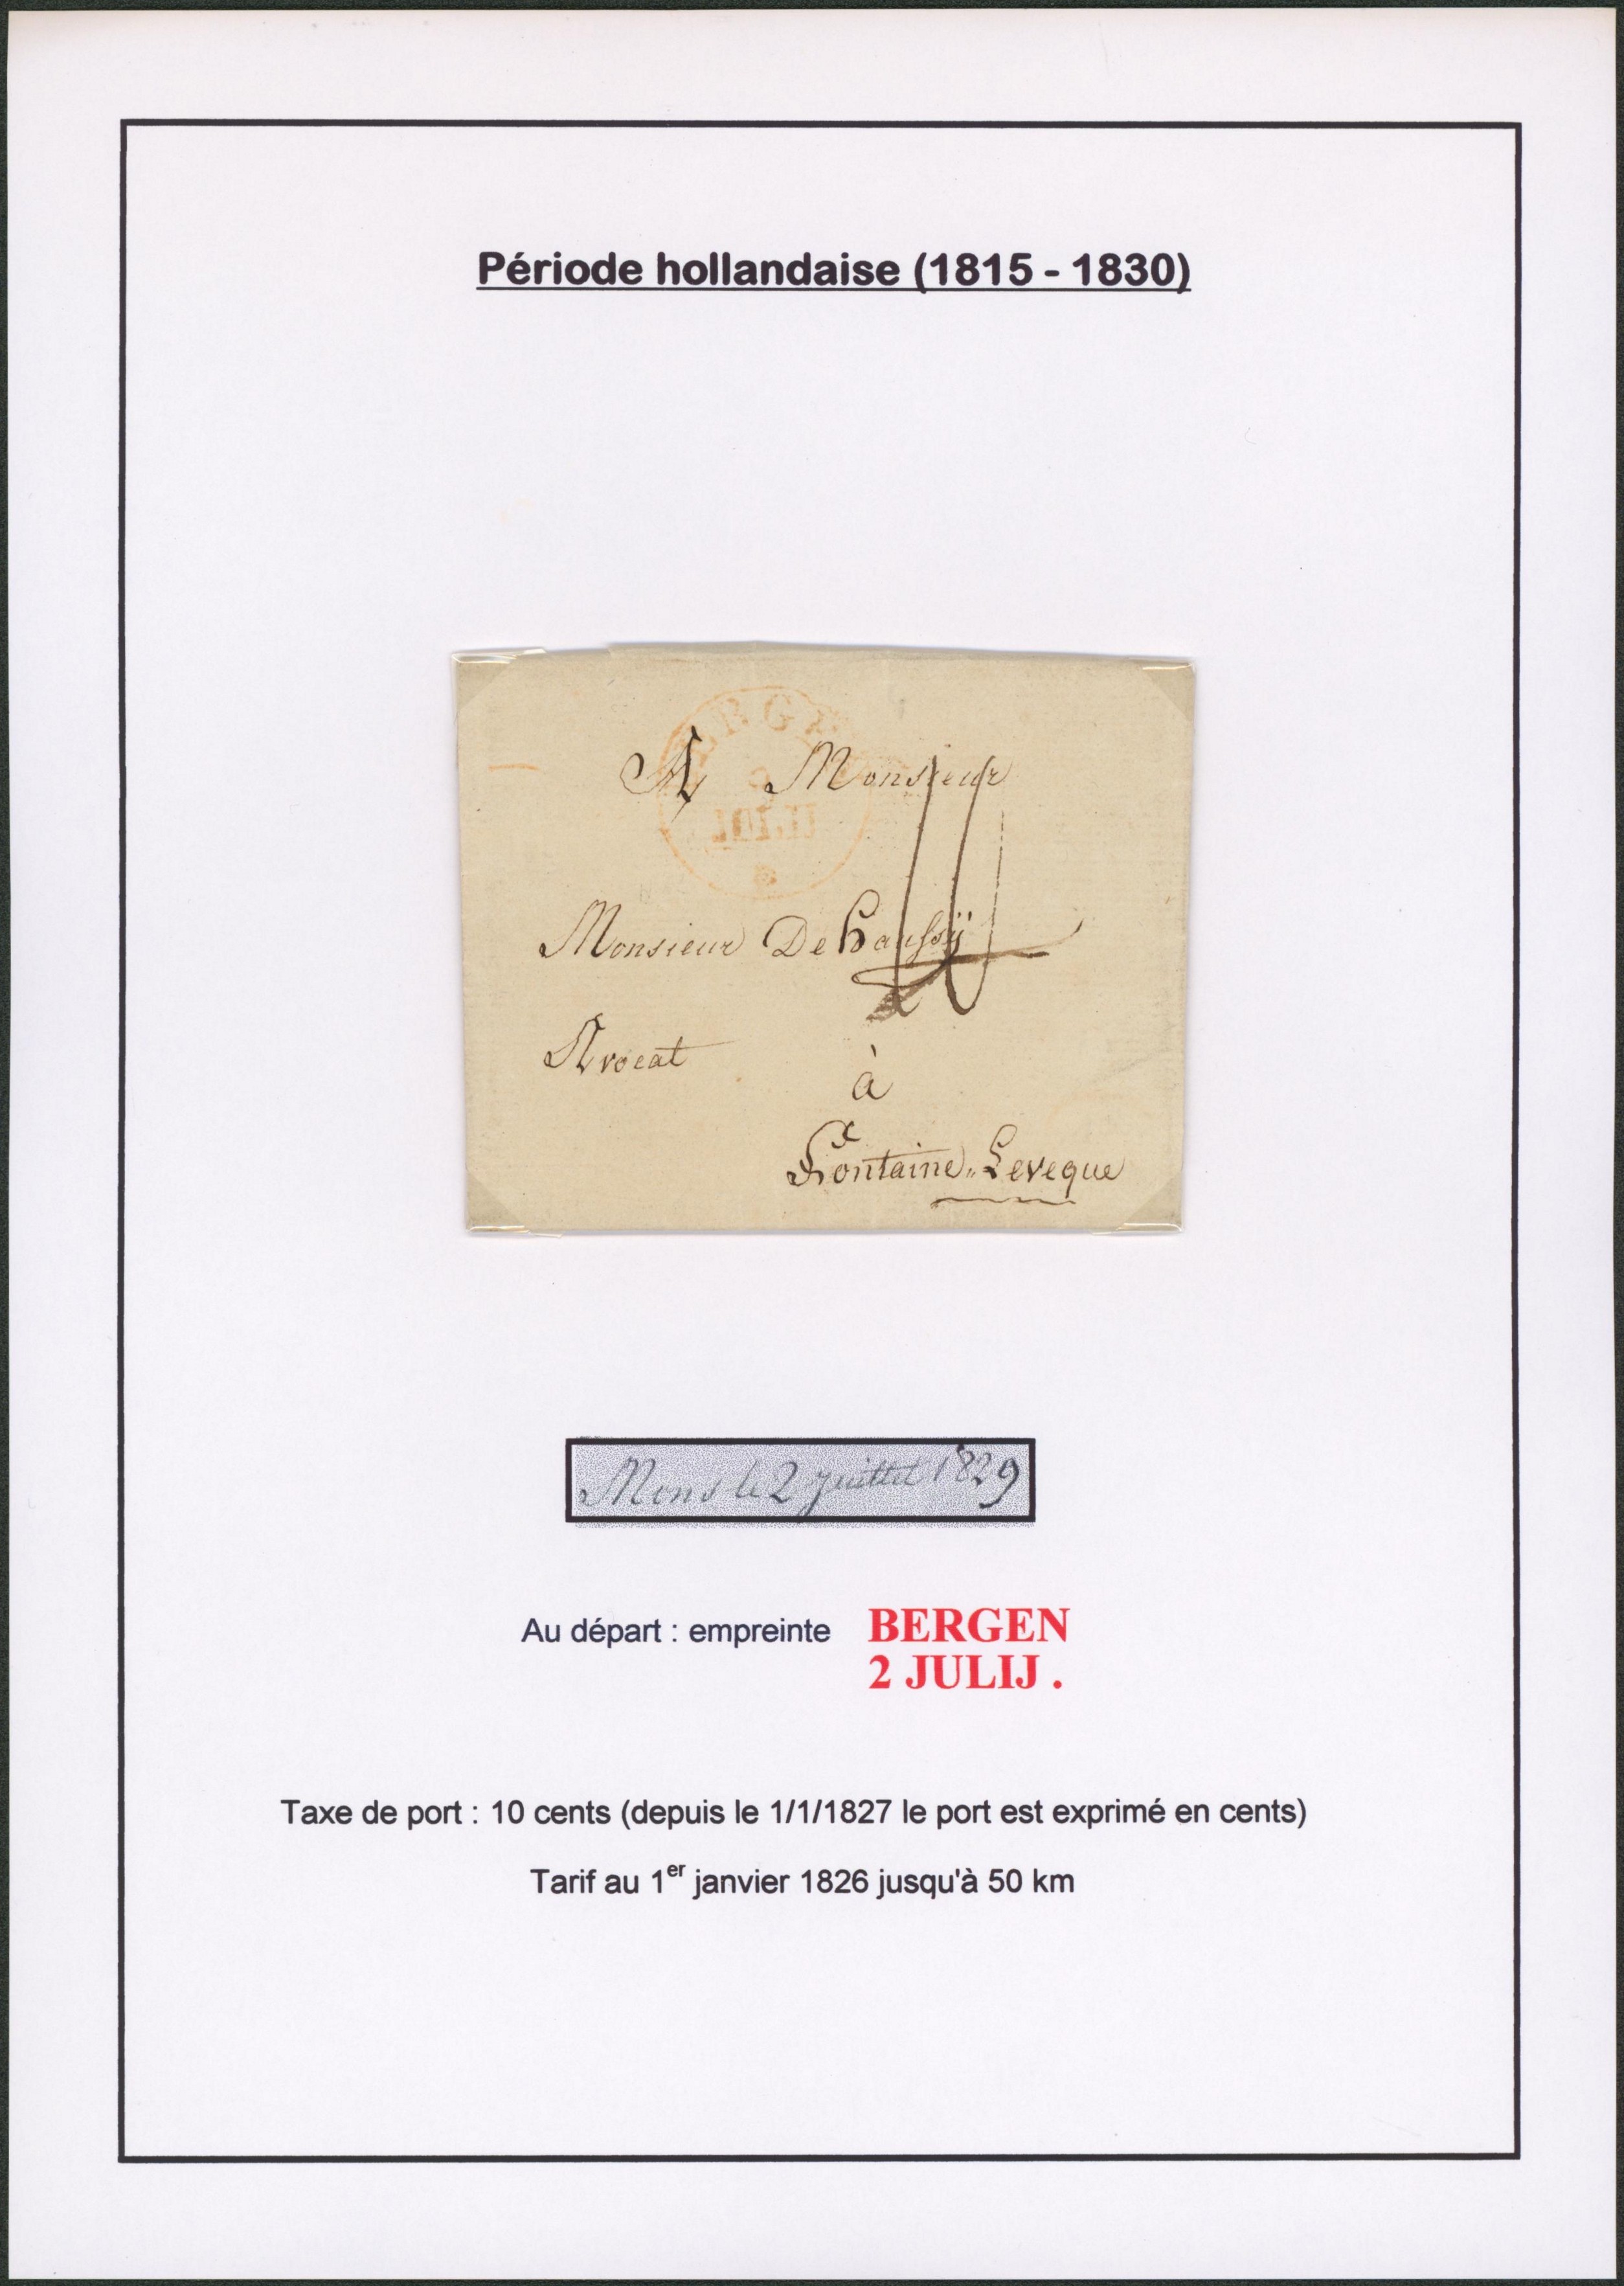 Période hollandaise (1815 - 1830)
A Monsieur
Monsieur De haussÿ
Avocat
à
Fontaine „ Leveque
10
Mons le 2 juillet 1829
Au départ : empreinte BERGEN
2 JULIJ .
Taxe de port : 10 cents (depuis le 1/1/1827 le port est exprimé en cents)
Tarif au 1er janvier 1826 jusqu'à 50 km